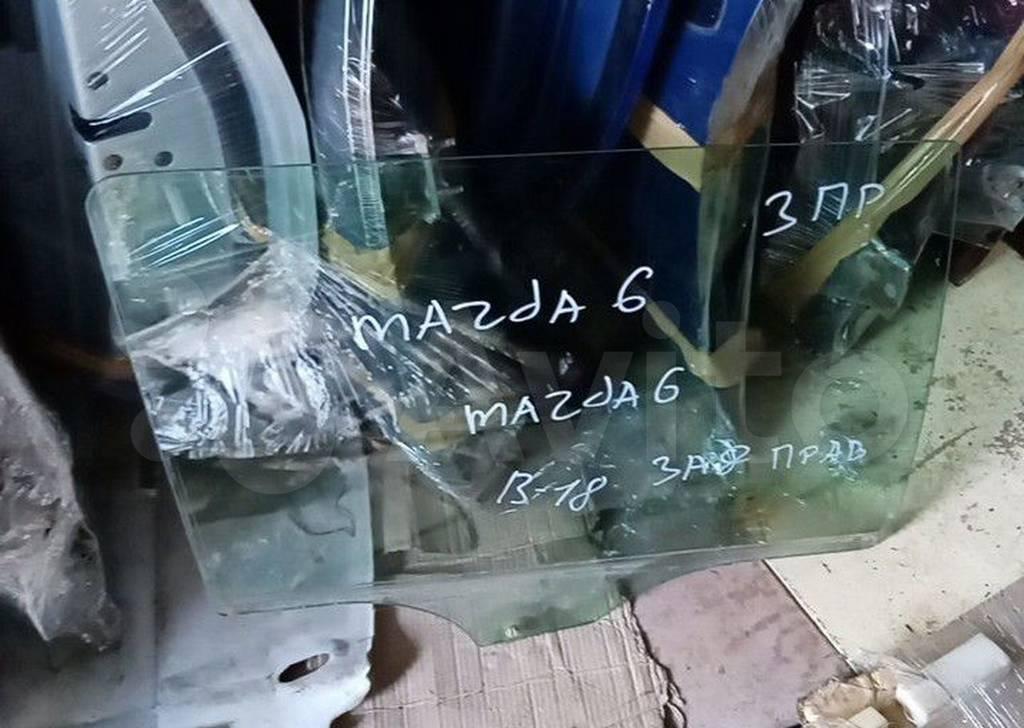 3 ПР
mAZdA 6
mAZdA 6
B-18 ЗАД ПРАВ
Avito